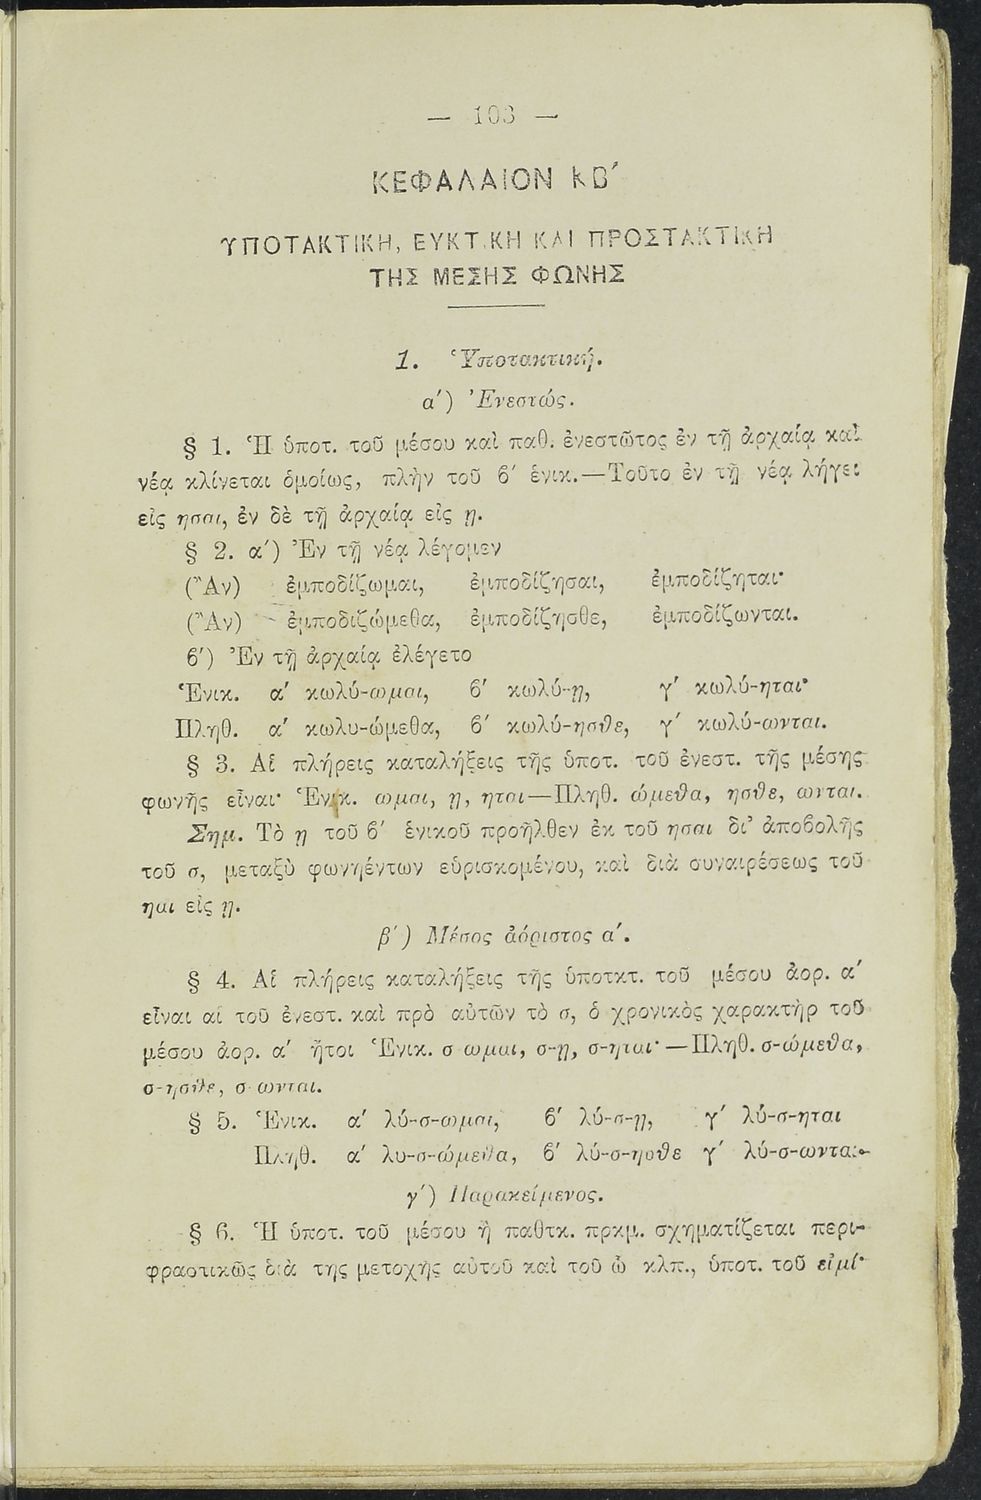 — 103 —
ΚΕΦΑΛΑΙΟΝ ΚΒ′
ΥΠΟΤΑΚΤΙΚΗ, ΕΥΚΤΙΚΗ ΚΑΙ ΠΡΟΣΤΑΚΤΙΚΗ
ΤΗΣ ΜΕΣΗΣ ΦΩΝΗΣ
1. Ὑποτακτική.
α′) Ἐνεστώς.
§ 1. Ἡ ὑποτ. τοῦ μέσου καὶ παθ. ἐνεστῶτος ἐν τῇ ἀρχαίᾳ καὶ
νέᾳ κλίνεται ὁμοίως, πλὴν τοῦ β′ ἑνικ.—Τοῦτο ἐν τῇ νέᾳ λήγει
εἰς ησαι, ἐν δὲ τῇ ἀρχαίᾳ εἰς ῃ.
§ 2. α′) Ἐν τῇ νέᾳ λέγομεν
(Ἂν) ἐμποδίζωμαι, ἐμποδίζησαι, ἐμποδίζηται·
(Ἂν) ἐμποδιζώμεθα, ἐμποδίζησθε, ἐμποδίζωνται.
β′) Ἐν τῇ ἀρχαίᾳ ἐλέγετο
Ἑνικ. α′ κωλύ-ωμαι, β′ κωλύ-ῃ, γ′ κωλύ-ηται·
Πληθ. α′ κωλυ-ώμεθα, β′ κωλύ-ησθε, γ′ κωλύ-ωνται.
§ 3. Αἱ πλήρεις καταλήξεις τῆς ὑποτ. τοῦ ἐνεστ. τῆς μέσης
φωνῆς εἶναι· Ἑνικ. ωμαι, ῃ, ηται—Πληθ. ώμεθα, ησθε, ωνται.
Σημ. Τὸ ῃ τοῦ β′ ἑνικοῦ προῆλθεν ἐκ τοῦ ησαι δι' ἀποβολῆς
τοῦ σ, μεταξὺ φωνηέντων εὑρισκομένου, καὶ διὰ συναιρέσεως τοῦ
ηαι εἰς ῃ.
β′) Μέσος ἀόριστος α′.
§ 4. Αἱ πλήρεις καταλήξεις τῆς ὑποτκτ. τοῦ μέσου ἀορ. α′
εἶναι αἱ τοῦ ἐνεστ. καὶ πρὸ αὐτῶν τὸ σ, ὁ χρονικὸς χαρακτὴρ τοῦ
μέσου ἀορ. α′ ἤτοι Ἑνικ. σ ωμαι, σ-ῃ, σ-ηται·—Πληθ. σ-ώμεθα,
σ-ησθε, σ-ωνται.
§ 5. Ἑνικ. α′ λύ-σ-ωμαι, β′ λύ-σ-ῃ, γ′ λύ-σ-ηται
Πληθ. α′ λυ-σ-ώμεθα, β′ λύ-σ-ησθε γ′ λύ-σ-ωνται·
γ′) Παρακείμενος.
§ 6. Ἡ ὑποτ. τοῦ μέσου ἢ παθτκ. πρκμ. σχηματίζεται περι-
φραστικῶς διὰ της μετοχῆς αὐτοῦ καὶ τοῦ ὦ κλπ., ὑποτ. τοῦ εἰμί·